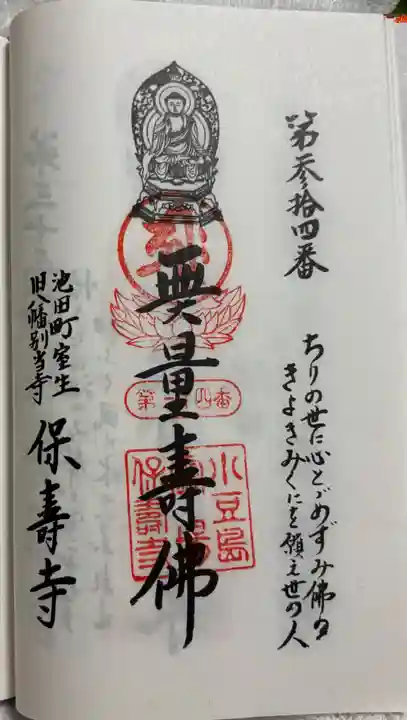 第参拾四番
ちりの世に心とゞめずみ佛の
きよきみくにを願え世の人
無量壽佛
第 四番
小豆島
保壽寺
池田町室生
旧八幡別当寺
保壽寺